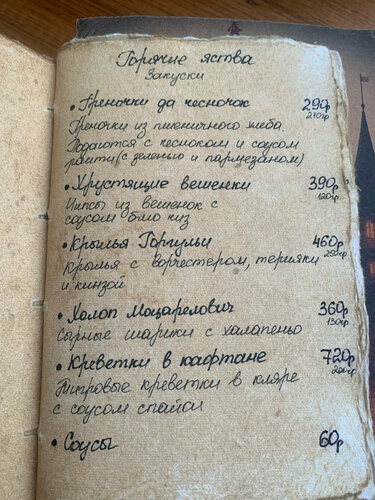 Горячие яства
Закуски
• Греночки да чесночок 290р
210гр
Греночки из пшеничного хлеба.
Подаются с чесноком и соусом
ранти (с зеленью и пармезаном)
• Хрустящие вешенки 390р
120гр
Чипсы из вешенок с
соусом блю чиз
• Крылья Горгульи 460р
250гр
Крылья с ворчестером, терияки
и кинзой
• Халоп Моцарелович 360р
130гр
Сырные шарики с халапеньо
• Креветки в кафтане 720р
Тигровые креветки в кляре
с соусом спайси
• Соусы 60р